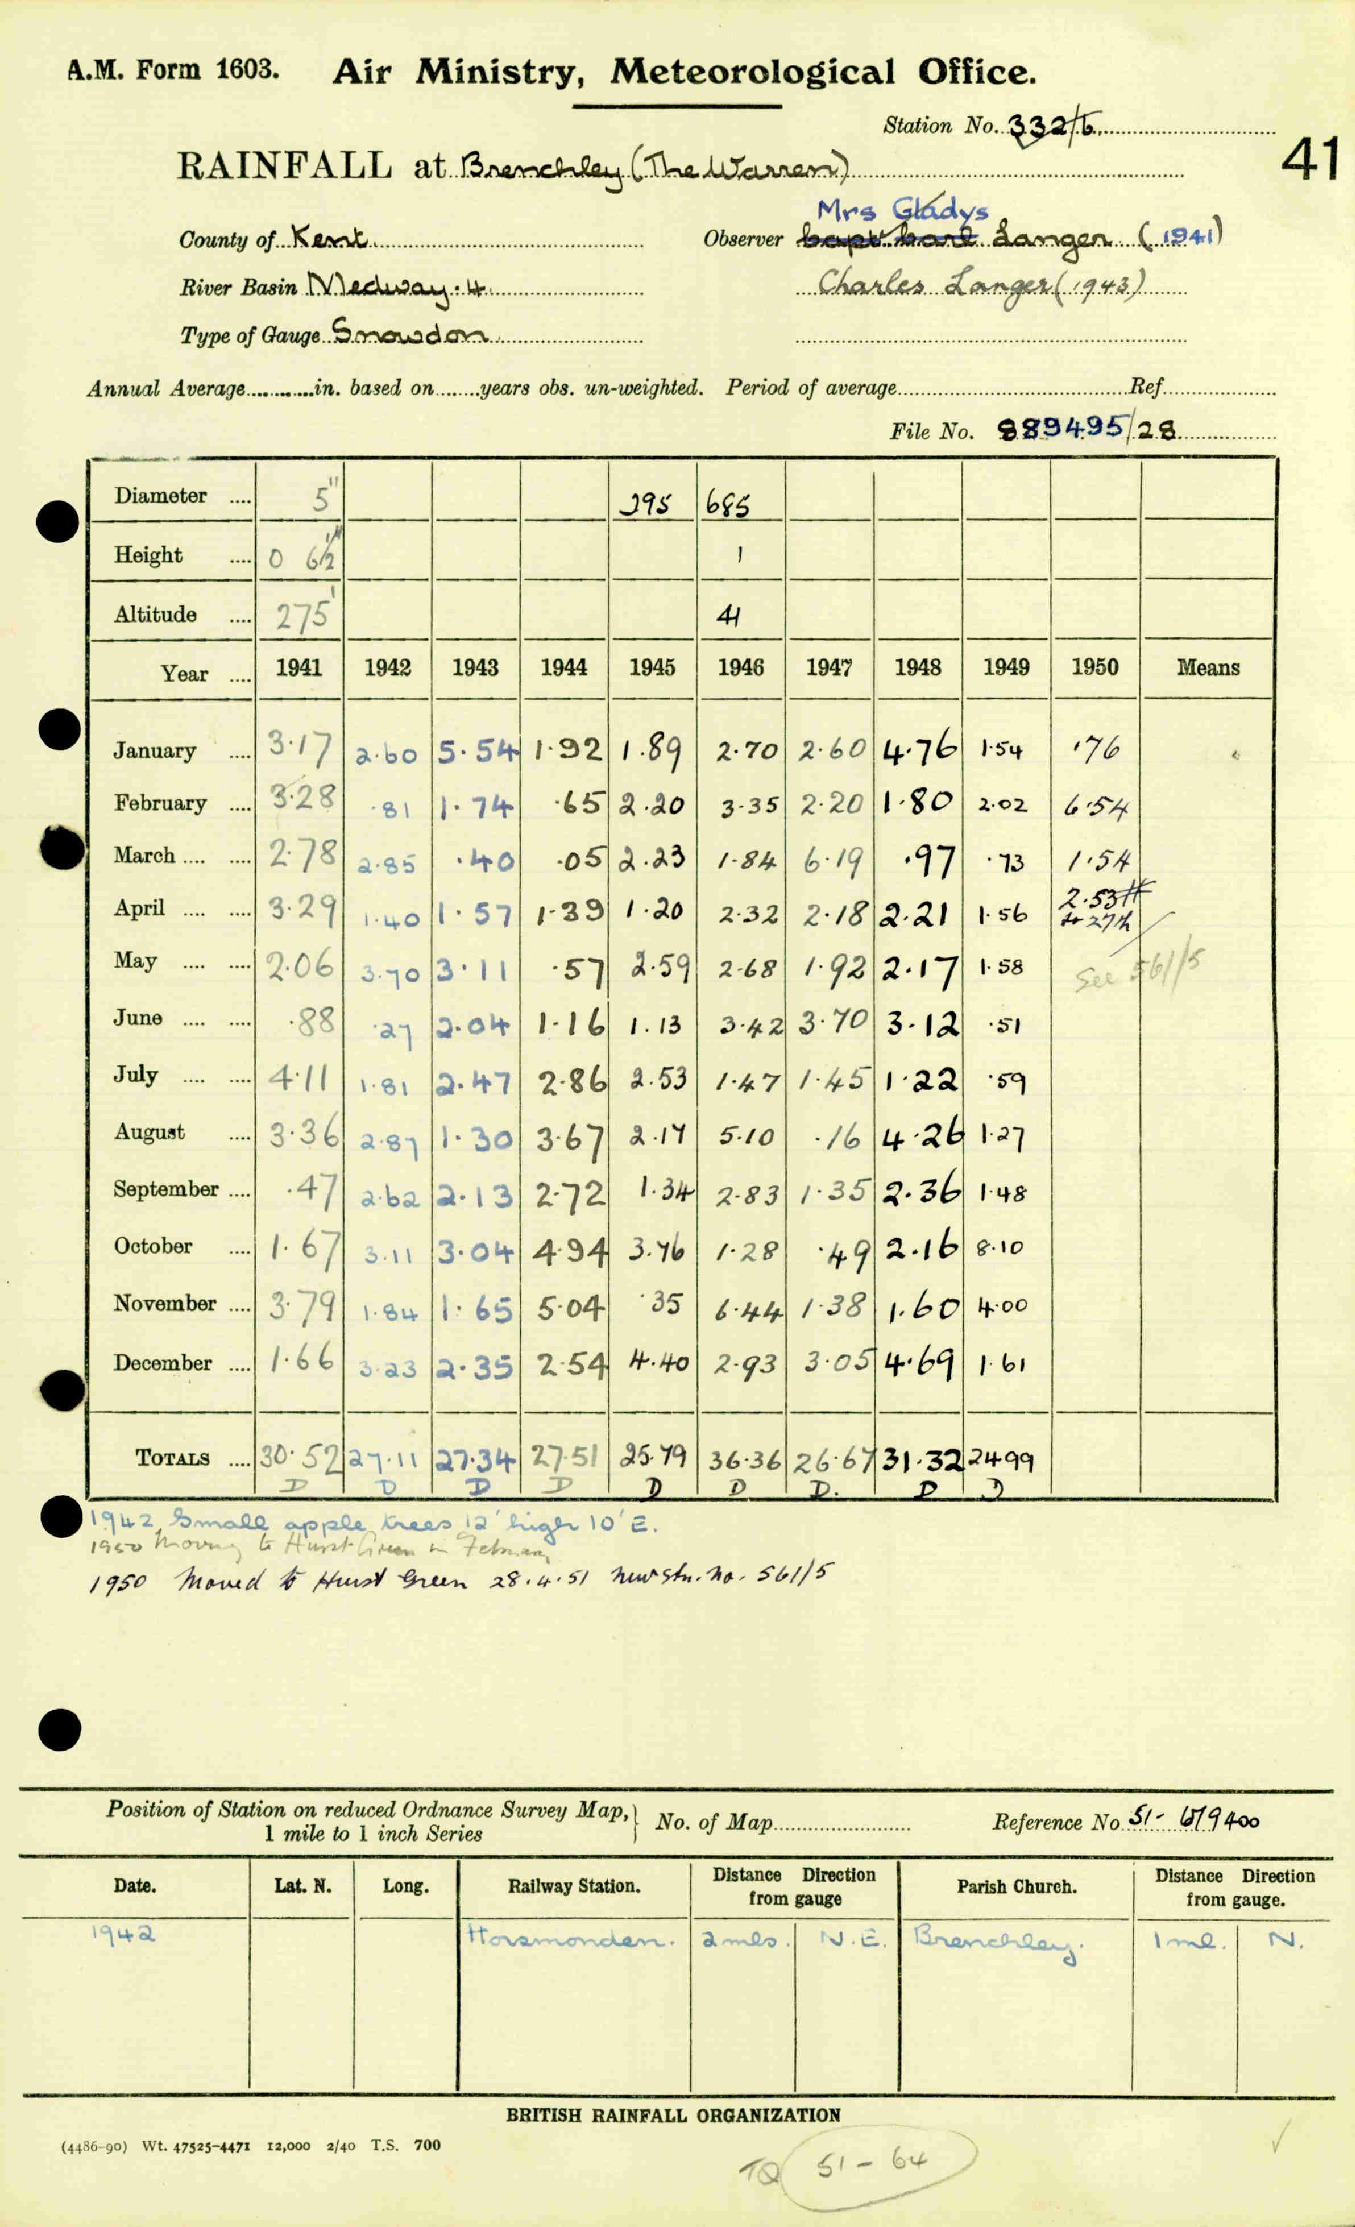 A.M. Form 1603. Air Ministry, Meteorological Office.
Station No. 332/6
41
RAINFALL at Brenchley (The Warren)
Mrs Gladys
County of Kent Observer Capt Carl Langer (1941)
River Basin Medway. 4. Charles Langer (1943)
Type of Gauge Snowdon
Annual Average in. based on years obs. un-weighted. Period of average Ref.
File No. 889495/28
Diameter .... 5" 295 685
Height .... 0 6½" 1
Altitude .... 275' 41
Year .... 1941 1942 1943 1944 1945 1946 1947 1948 1949 1950 Means
January .... 3.17 2.60 5.54 1.92 1.89 2.70 2.60 4.76 1.54 .76
February .... 3.28 .81 1.74 .65 2.20 3.35 2.20 1.80 2.02 6.54
March .... .... 2.78 2.85 .40 .05 2.23 1.84 6.19 .97 .73 1.54
April .... .... 3.29 1.40 1.57 1.39 1.20 2.32 2.18 2.21 1.56 2.53 to 27th
May .... .... 2.06 3.70 3.11 .57 2.59 2.68 1.92 2.17 1.58 See 561/5
June .... .... .88 .27 2.04 1.16 1.13 3.42 3.70 3.12 .51
July .... .... 4.11 1.81 2.47 2.86 2.53 1.47 1.45 1.22 .59
August .... 3.36 2.87 1.30 3.67 2.17 5.10 .16 4.26 1.27
September .... .47 2.62 2.13 2.72 1.34 2.83 1.35 2.36 1.48
October .... 1.67 3.11 3.04 4.94 3.76 1.28 .49 2.16 8.10
November .... 3.79 1.84 1.65 5.04 .35 6.44 1.38 1.60 4.00
December .... 1.66 3.23 2.35 2.54 4.40 2.93 3.05 4.69 1.61
TOTALS .... 30.52 27.11 27.34 27.51 25.79 36.36 26.67 31.32 24.99
D D D D D D D. D D
1942 Small apple trees 12' high 10' E.
1950 Moving to Hurst Green in February
1950 Moved to Hurst Green 28.4.51 new stn. no. 561/5
Position of Station on reduced Ordnance Survey Map,} No. of Map Reference No 51-679400
1 mile to 1 inch Series
Date. Lat. N. Long. Railway Station. Distance Direction from gauge Parish Church. Distance Direction from gauge.
1942 Horsmonden. 2 mls. N.E. Brenchley. 1 ml. N.
BRITISH RAINFALL ORGANIZATION
(4486-90) Wt. 47525-4471 12,000 2/40 T.S. 700
TQ 51-64